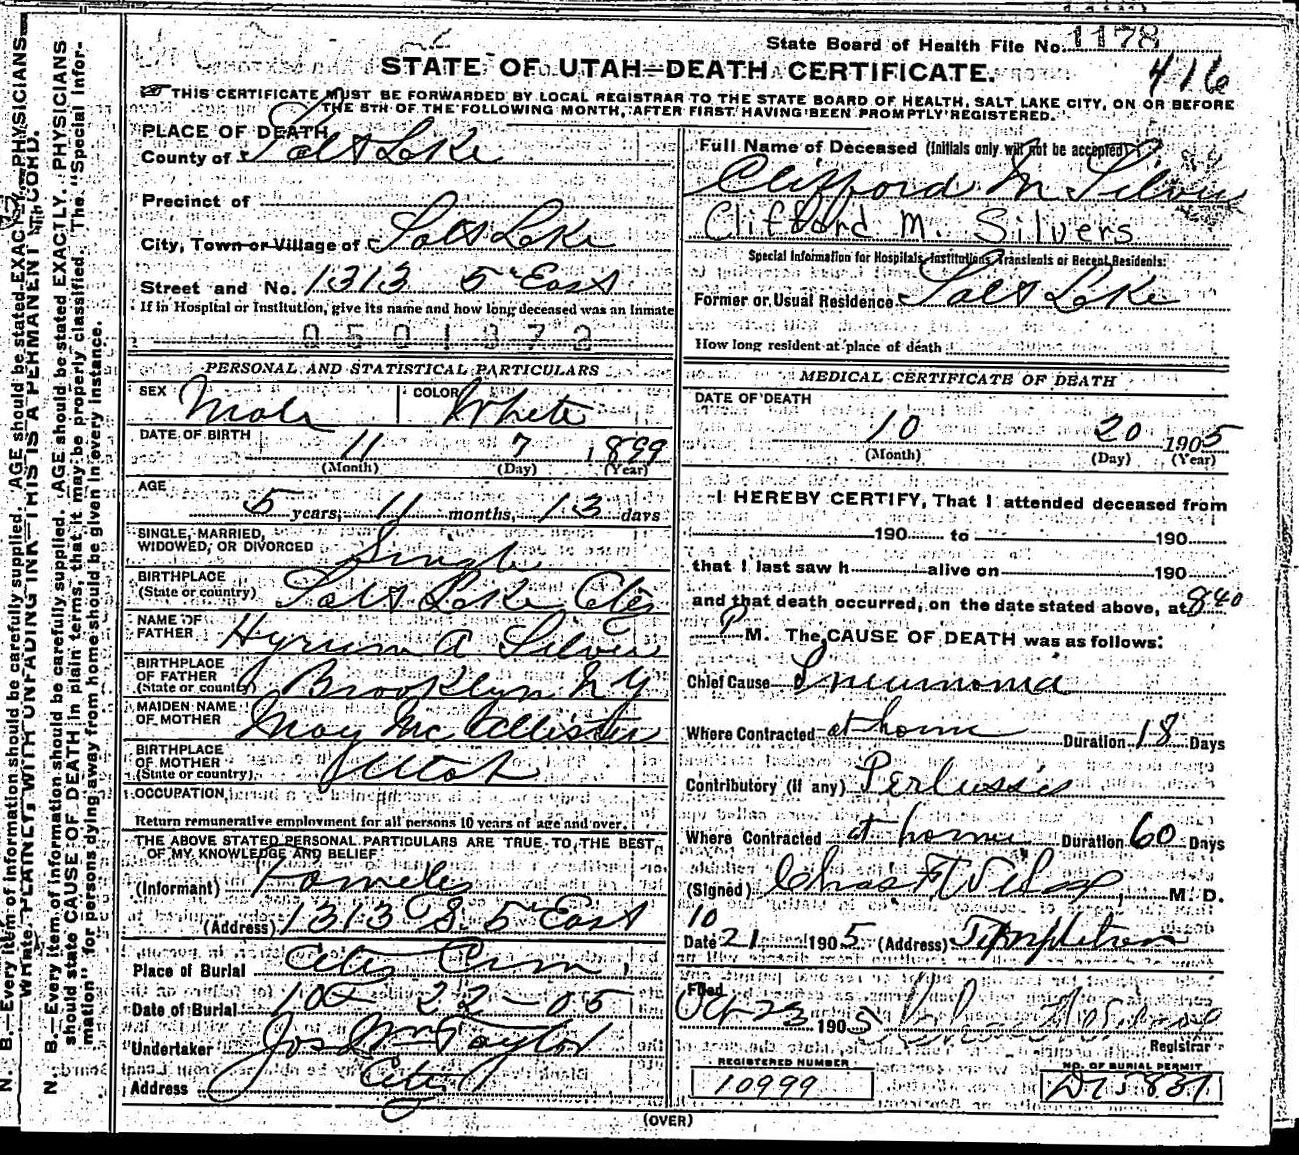 State Board of Health File No. 1178
416
STATE OF UTAH—DEATH CERTIFICATE.
THIS CERTIFICATE MUST BE FORWARDED BY LOCAL REGISTRAR TO THE STATE BOARD OF HEALTH, SALT LAKE CITY, ON OR BEFORE
THE 5TH OF THE FOLLOWING MONTH, AFTER FIRST HAVING BEEN PROMPTLY REGISTERED.
N. B.—Every item of information should be carefully supplied. AGE should be stated EXACTLY. PHYSICIANS
WRITE PLAINLY, WITH UNFADING INK—THIS IS A PERMANENT RECORD.
N. B.—Every item of information should be carefully supplied. AGE should be stated EXACTLY. PHYSICIANS
should state CAUSE OF DEATH in plain terms, that it may be properly classified. The "Special Infor-
mation" for persons dying away from home should be given in every instance.
PLACE OF DEATH
County of Salt Lake
Precinct of
City, Town or Village of Salt Lake
Street and No. 1313 5" East
If in Hospital or Institution, give its name and how long deceased was an Inmate
0501372
PERSONAL AND STATISTICAL PARTICULARS
SEX Male COLOR White
DATE OF BIRTH 11 7 1899
(Month) (Day) (Year)
AGE
5 years, 11 months, 13 days
SINGLE, MARRIED,
WIDOWED, OR DIVORCED Single
BIRTHPLACE
(State or country) Salt Lake City
NAME OF
FATHER Hyrum A Silver
BIRTHPLACE
OF FATHER
(State or country) Brooklyn N Y
MAIDEN NAME
OF MOTHER May McAllister
BIRTHPLACE
OF MOTHER
(State or country) Utah
OCCUPATION
Return remunerative employment for all persons 10 years of age and over.
THE ABOVE STATED PERSONAL PARTICULARS ARE TRUE TO THE BEST
OF MY KNOWLEDGE AND BELIEF
(Informant) Family
(Address) 1313 S. 5" East
Place of Burial City Cem,
Date of Burial 10 - 22 - 05
Undertaker Jos Wm Taylor
Address City
Full Name of Deceased (Initials only will not be accepted)
Clifford M Silver
Clifford M. Silvers
Special Information for Hospitals, Institutions, Transients or Recent Residents:
Former or Usual Residence Salt Lake
How long resident at place of death
MEDICAL CERTIFICATE OF DEATH
DATE OF DEATH
10 20 1905
(Month) (Day) (Year)
I HEREBY CERTIFY, That I attended deceased from
190 to 190
that I last saw h alive on 190
and that death occurred, on the date stated above, at 840
P M. The CAUSE OF DEATH was as follows:
Chief Cause Pneumonia
Where Contracted at home Duration 18 Days
Contributory (if any) Pertussis
Where Contracted at home Duration 60 Days
(Signed) Chas F Wilcox, M. D.
10
Date 21 1905 (Address) Templeton
Filed
Oct 23 1905
Registrar
REGISTERED NUMBER
10999
NO. OF BURIAL PERMIT
(OVER)